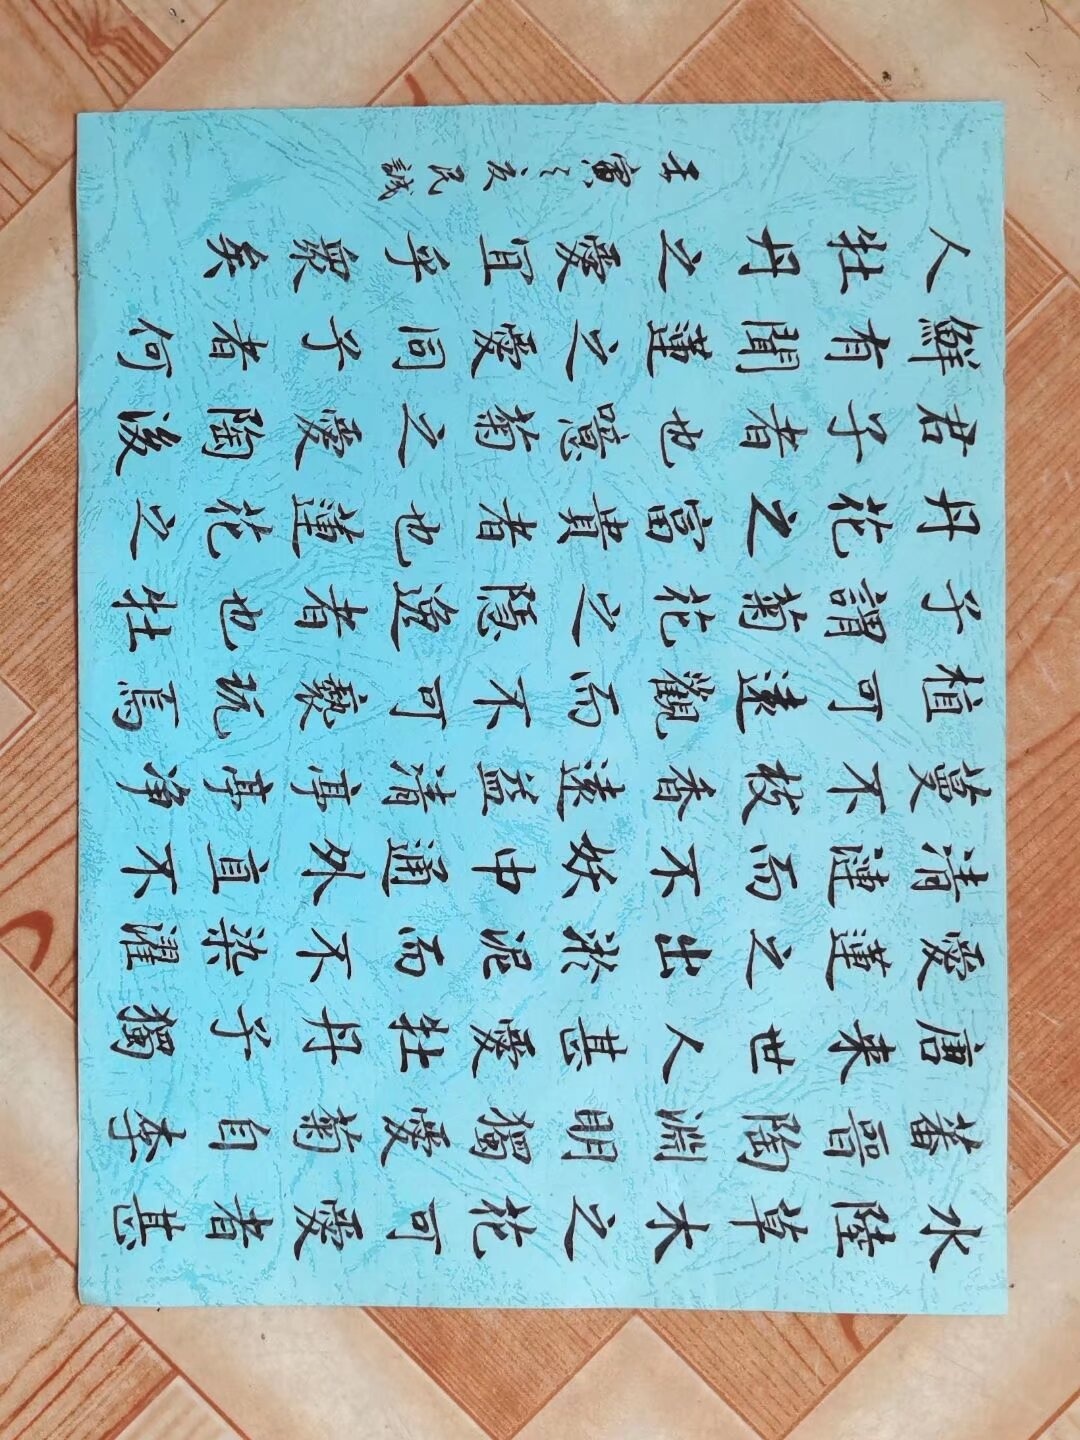 水陸草木之花可愛者甚
蕃晉陶淵明獨愛菊自李
唐來世人甚愛牡丹予獨
愛蓮之出淤泥而不染濯
清漣而不妖中通外直不
蔓不枝香遠益清亭亭净
植可遠觀而不可褻玩焉
予謂菊花之隱逸者也牡
丹花之富貴者也蓮花之
君子者也噫菊之愛陶後
鮮有聞蓮之愛同予者何
人牡丹之愛宜乎衆矣
壬寅之夏民誠